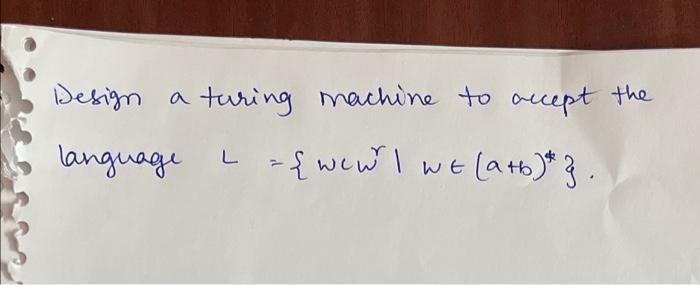 Design a turing machine to accept the
language L = { wcwʳ | w ∈ (a+b)* }.